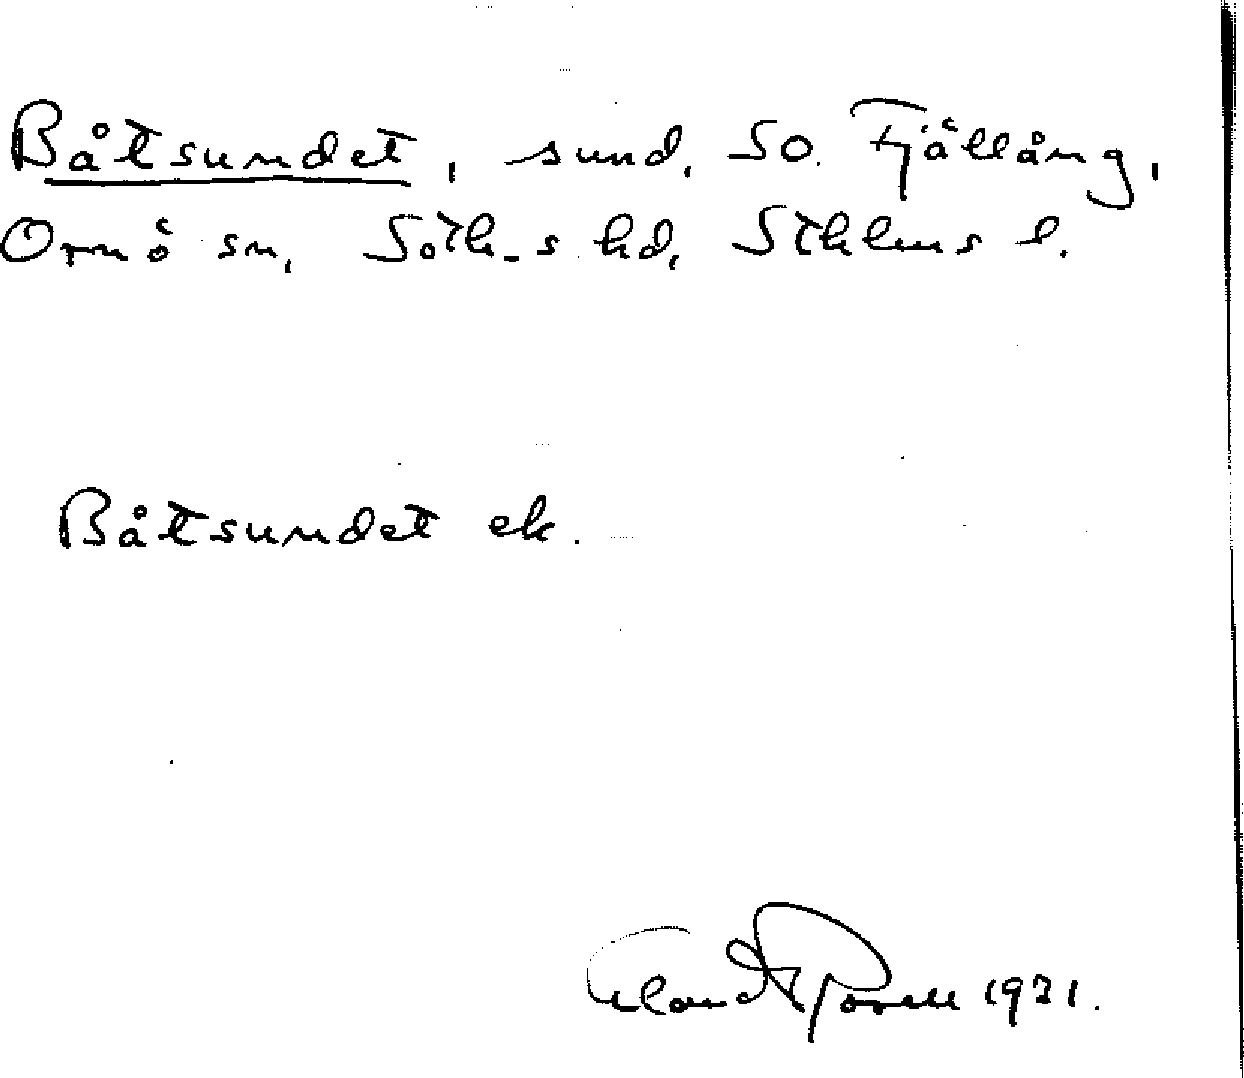 Båtsundet, sund, SO. Fjällång,
Ornö sn, Soth_s hd, Sthlms l.
Båtsundet ek.
1921.